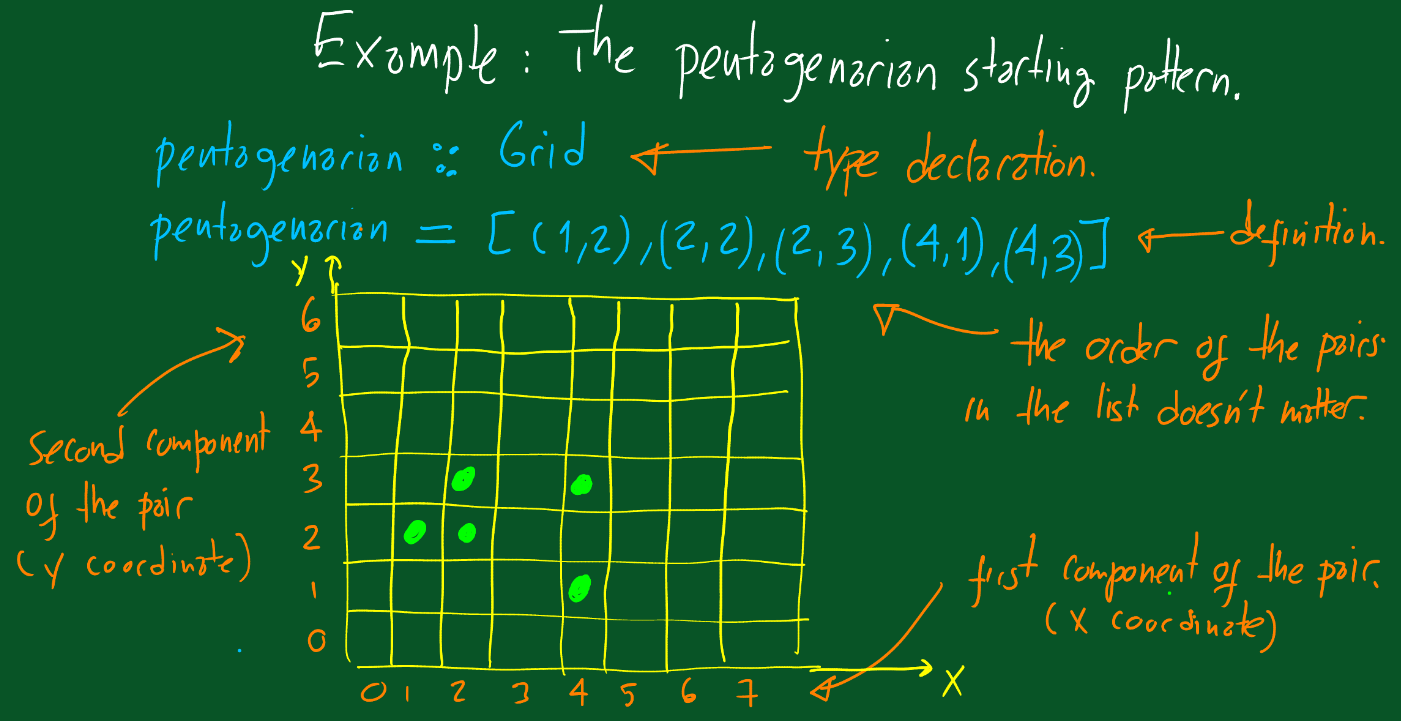 Example: The pentagenarian starting pattern.
pentagenarian :: Grid
type declaration.
pentagenarian = [(1,2),(2,2),(2,3),(4,1),(4,3)]
definition.
the order of the pairs
in the list doesn't matter.
Y
6
5
4
3
2
1
0
second component
of the pair
(y coordinate)
first component of the pair.
(X coordinate)
0 1 2 3 4 5 6 7
X